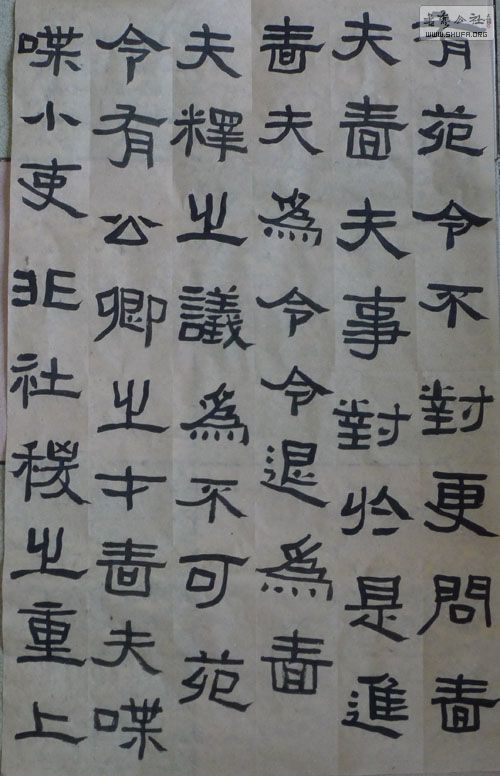 有苑令不對更問嗇
夫嗇夫事對於是進
嗇夫為令令退為嗇
夫釋之議為不可苑
令有公卿之才嗇夫喋
喋小吏非社稷之重上
WWW.SHUFA.ORG